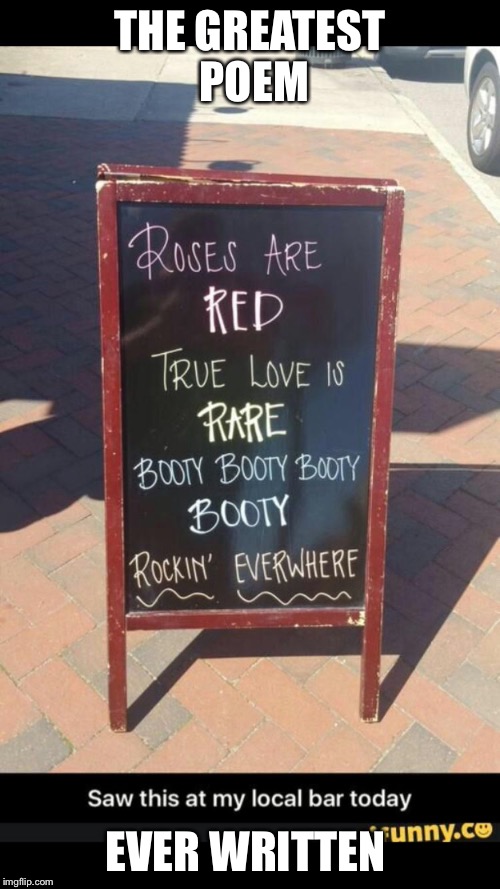 THE GREATEST
POEM
ROSES ARE
RED
TRUE LOVE IS
RARE
BOOTY BOOTY BOOTY
BOOTY
ROCKIN' EVERWHERE
Saw this at my local bar today
unny.co
EVER WRITTEN
imgflip.com